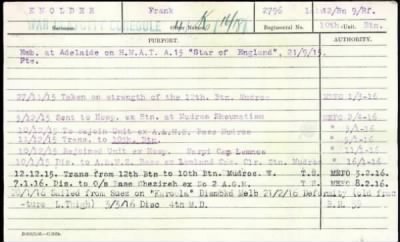 KNOLDER Frank 2796 12/Bn 9/Rf.
Surname. Regimental No. 10th Unit. Btn.
PURPORT. AUTHORITY.
Emb. at Adelaide on H.M.A.T. A.15 "Star of England", 21/9/15.
Pte.
27/11/15 Taken on strength of the 12th. Btn. Mudros MEFO 1/3-16
5/12/15 Sent to Hosp. ex Btn. at Mudros Rheumatism MEFO 2/4-16
10/12/15 To rejoin Unit ex A.&N.Z. Base Mudros
11/12/15 Trans. to 10th. Btn.
10/12/15 Rejoined Unit ex Hosp. Sarpi Cmp Lemnos
10/1/16 Dis. to A.&N.Z. Base ex Lowland Cas. Clr. Stn. Mudros " 16/1-16
12.12.15. Trans from 12th Btn to 10th Btn. Mudros. W. T.S. MEFO 3.2-16
7.1.16. Dis. to O/s Base Ghezireh ex No 2 A.G.H. T.B. MEFO 8.2-16
20/1/16 Sailed from Suez on "Karoola" Disembkd Melb 21/2/16 Deformity (old frac
-ture L.Thigh) 3/5/16 Disc 4th M.D. B.R. 39